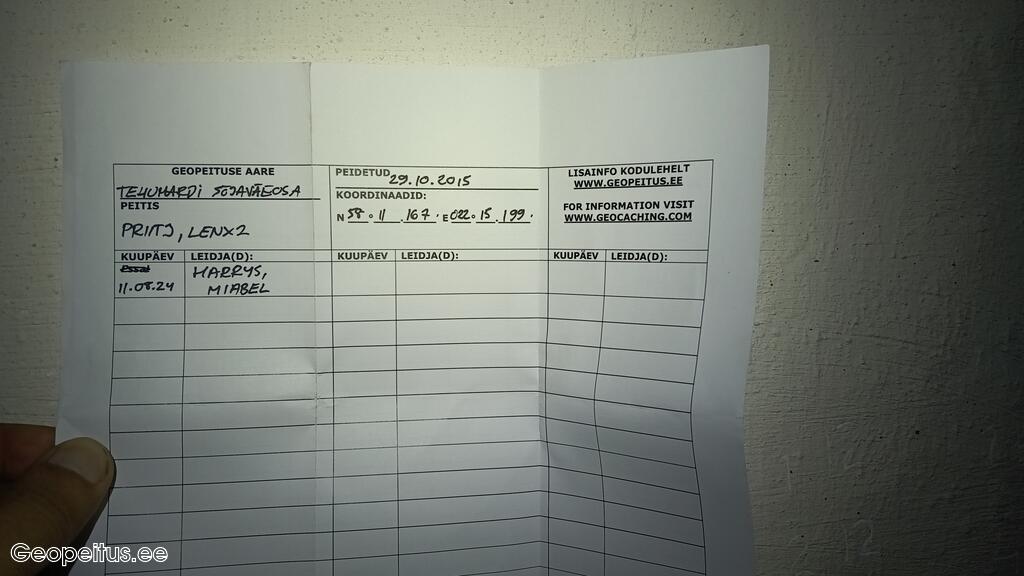 GEOPEITUSE AARE
TEHUMARDI SÕJAVÄEOSA
PEITIS
PRIITJ, LENX2
PEIDETUD
29.10.2015
KOORDINAADID:
N 58° 11 .167' E 022° 15 .199'
LISAINFO KODULEHELT
WWW.GEOPEITUS.EE
FOR INFORMATION VISIT
WWW.GEOCACHING.COM
KUUPÄEV LEIDJA(D): KUUPÄEV LEIDJA(D): KUUPÄEV LEIDJA(D):
HARRYS,
11.08.24 MIABEL
Geopeitus.ee